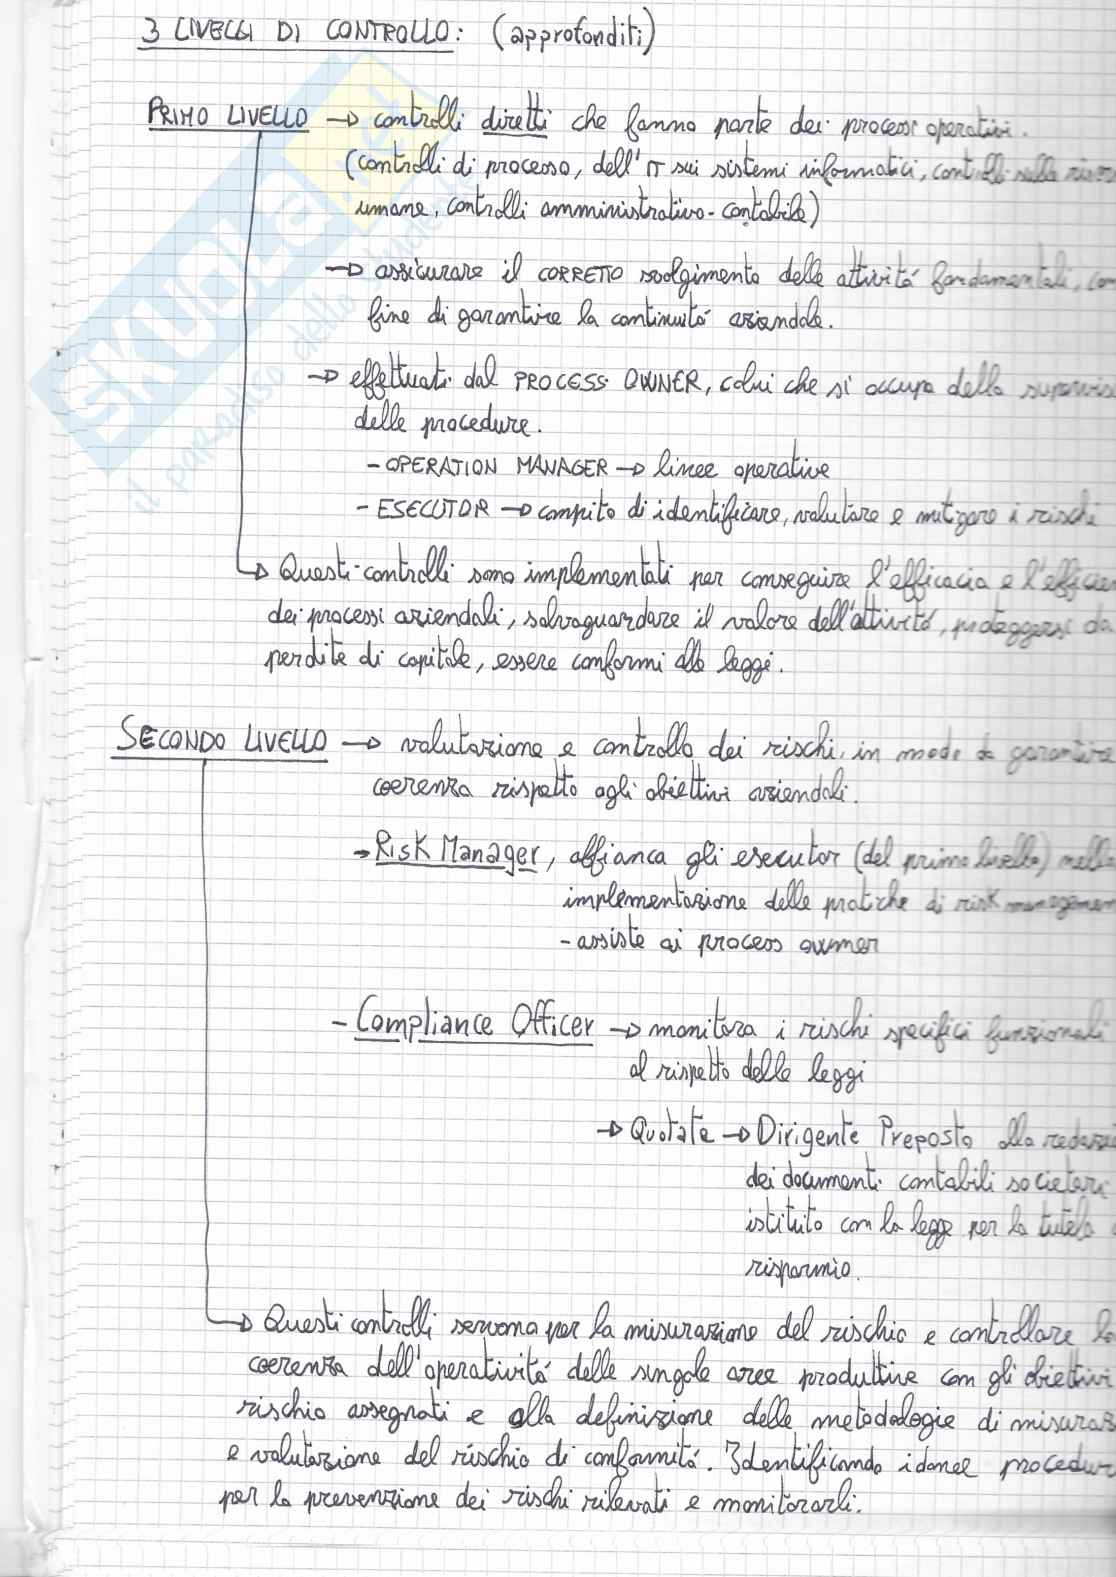 3 LIVELLI DI CONTROLLO: (approfonditi)
PRIMO LIVELLO → controlli diretti che fanno parte dei processi operativi.
(controlli di processo, dell'IT sui sistemi informatici, controlli sulle risor
umane, controlli amministrativo-contabile)
→ assicurare il CORRETTO svolgimento delle attività fondamentali, con
fine di garantire la continuità aziendale.
→ effettuati dal PROCESS OWNER, colui che si occupa della supervisi
delle procedure.
- OPERATION MANAGER → linee operative
- ESECUTOR → compito di identificare, valutare e mitigare i rischi
→ Questi controlli sono implementati per conseguire l'efficacia e l'efficien
dei processi aziendali, salvaguardare il valore dell'attività, proteggersi da
perdite di capitale, essere conformi alle leggi.
SECONDO LIVELLO → valutazione e controllo dei rischi, in modo da garantire
coerenza rispetto agli obiettivi aziendali.
→ Risk Manager, affianca gli esecutor (del primo livello) nella
implementazione delle pratiche di risk managemen
- assiste ai process owner
- Compliance Officer → monitora i rischi specifici funzionali
al rispetto delle leggi
→ Quotate → Dirigente Preposto alla redazi
dei documenti contabili societari
istituto con la legge per la tutela
risparmio.
→ Questi controlli servono per la misurazione del rischio e controllare la
coerenza dell'operatività delle singole aree produttive con gli obiettivi
rischio assegnati e alla definizione delle metodologie di misuraz
e valutazione del rischio di conformità. Identificando idonee procedur
per la prevenzione dei rischi rilevati e monitorarli.
SKUOLA.net
il paradiso dello studente